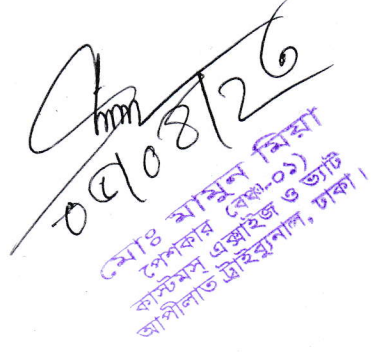 ০৫/০৪/২৬
মোঃ মামুন মিয়া
পেশকার (বেঞ্চ-০১)
কাস্টমস্ এক্সাইজ ও ভ্যাট
আপীলাত ট্রাইব্যুনাল, ঢাকা।